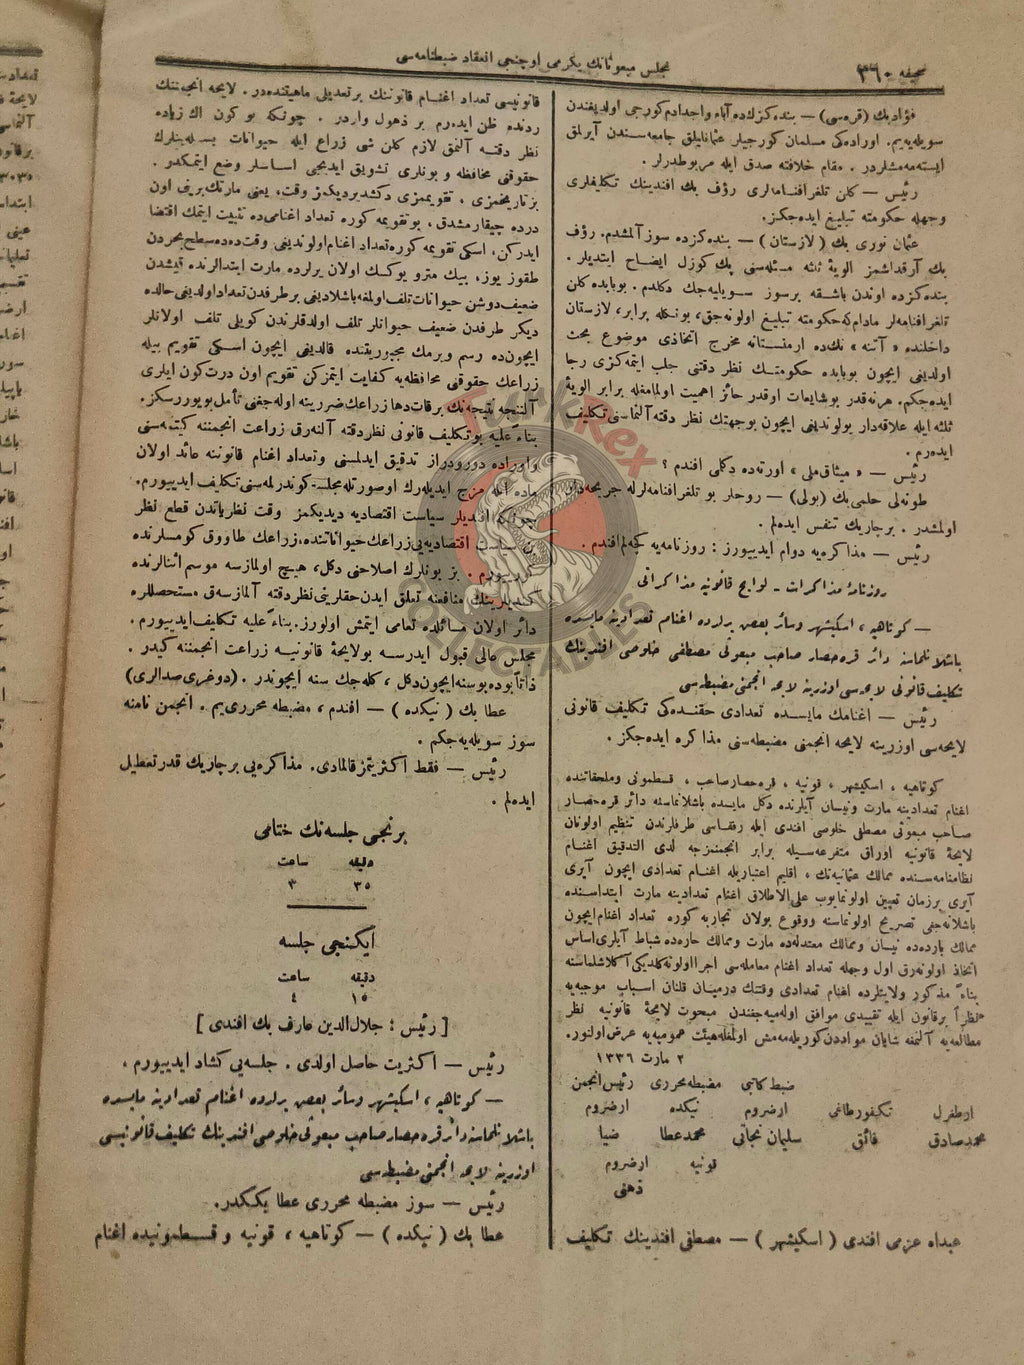 صحیفه ٣٦٠
مجلس مبعوثانك يكرمی اوچنجی انعقاد ضبطنامه‌سی
فؤاد بك (قره‌سی) — بنده‌كزك‌ده آباء واجدادم كورجی اولدیغندن
سویله‌یه‌یم. اوراده‌كی مسلمان كورجیلر عثمانلیلق جامعه‌سندن آیرلمق
ایسته‌مه‌مشلردر . مقام خلافته صدق ایله مربوطدرلر .
رئیس — كلن تلغرافنامه‌لری رؤف بك افندینك تكلیفلری
وجهله حكومته تبلیغ ایده‌جكز.
عثمان نوری بك ( لازستان ) — بنده‌كزده سوز آلمشدم. رؤف
بك آرقداشمز الویهٔ ثلثه مسئله‌سنی پك كوزل ایضاح ایتدیلر .
بنده‌كزده اوندن باشقه برسوز سویلیه‌جك دكلدم . بوبابده كلن
تلغرافنامه‌لر مادام‌كه حكومته تبلیغ اولونه‌جق، بونكله برابر، لازستان
داخلنده « آتنه » نك‌ده ارمنستانه مخرج اتخاذی موضوع بحث
اولدیغی ایچون بوبابده حكومتك نظر دقتنی جلب ایتمه‌كزی رجا
ایده‌جكم. هرنه‌قدر بوشایعات اوقدر حائز اهمیت اولمامغله برابر الویهٔ
ثلثه ایله علاقه‌دار بولوندیغی ایچون بوجهتك نظر دقته آلنماسنی تكلیف
ایده‌رم .
رئیس — « میثاق ملی » اورته‌ده دكلمی افندم ؟
طونه‌لی حلمی بك (بولی) — روحلر بو تلغرافنامه‌لرله جریحه‌دار
اولمشدر . برچاریك تنفس ایده‌لم .
رئیس — مذاكره‌یه دوام ایدییورز : روزنامه‌یه كچه‌لم افندم .
روزنامهٔ مذاكرات - لوایح قانونیه مذاكراتی
— كوتاهیه ، اسكیشهر وسائر بعض یرلرده اغنام تعدادینه مایسده
باشلانلماسنه دائر قره‌حصار صاحب مبعوثی مصطفی خلوصی افندینك
تكلیف قانونی لایحه‌سی اوزرینه لایحه انجمنی مضبطه‌سی
رئیس — اغنامك مایسده تعدادی حقنده‌كی تكلیف قانونی
لایحه‌سی اوزرینه لایحه انجمنی مضبطه‌سنی مذاكره ایده‌جكز .
كوتاهیه ، اسكیشهر ، قونیه ، قره‌حصارصاحب ، قسطمونی وملحقاتنده
اغنام تعدادینه مارت ونیسان آیلرنده دكل مایسده باشلانماسنه دائر قره‌حصار
صاحب مبعوثی مصطفی خلوصی افندی ایله رفقاسی طرفلرندن تنظیم اولونان
لایحهٔ قانونیه اوراق متفرعه‌سیله برابر انجمنمزجه لدی التدقیق اغنام
نظامنامه‌سنده ممالك عثمانیه‌نك ، اقلیم اعتباریله اغنام تعدادی ایچون آیری
آیری برزمان تعیین اولونمایوب علی‌الاطلاق اغنام تعدادینه مارت ابتداسنده
باشلانه‌جغی تصریح اولونماسنه ووقوع بولان تجاربه كوره تعداد اغنام‌ایچون
ممالك بارده‌ده نیسان وممالك معتدله‌ده مارت وممالك حاره‌ده شباط آیلری‌اساس
اتخاذ اولونه‌رق اول وجهله تعداد اغنام معامله‌سی اجرا اولونه‌كلدیكی آكلاشلماسنه
بناءً مذكور ولایتلرده اغنام تعدادی وقتنك درمیان قلنان اسباب موجبه‌یه
نظراً برقانون ایله تقییدی موافق اوله‌میه‌جغندن مبحوث لایحهٔ قانونیه نظر
مطالعه‌یه آلنمغه شایان مواددن كوریله‌مه‌مش اولمغله هیئت عمومیه‌یه عرض اولنور.
٢ مارت ١٣٣٦
رئیس انجمن مضبطه محرری ضبط كاتبی
ارضروم نیكده ارضروم تكیفورطاغی ارطغرل
ضیا محمدعطا سلیمان نجاتی فائق محمدصادق
قونیه ارضروم
ذهنی
عبدالله عزمی افندی ( اسكیشهر ) — مصطفی افندینك تكلیف
قانونیسی تعداد اغنام قانوننك برتعدیلی ماهیتنده‌در . لایحه انجمننك
ردنده ظن ایده‌رم بر ذهول واردر . چونكه بو كون اك زیاده
نظر دقته آلنمق لازم كلن شی زراع ایله حیوانات بسله‌ینلرك
حقوقنی محافظه و بونلری تشویق ایدیجی اساسلر وضع ایتمكدر .
بزتاریخمزی ، تقویممزی دكشدیردیكمز وقت، یعنی مارتك برینی اون
درده چیقارمشدق، بوتقویمه كوره تعداد اغنامی‌ده تثبیت ایتمك اقتضا
ایدركن، اسكی تقویمه كوره تعداد اغنام اولوندیغی وقت‌ده‌ده سطح بحردن
طقوز یوز، بیك مترو یوكسك اولان یرلرده مارت ابتدالرنده قیشدن
ضعیف دوشن حیوانات تلف اولمغه باشلادیغی برطرفدن تعداد اولدیغی حالده
دیكر طرفدن ضعیف حیوانلر تلف اولدقلرندن كویلی تلف اولانلر
ایچون‌ده رسم ویرمك مجبوریتنده قالدیغی ایچون اسكی تقویم بیله
زراعك حقوقنی محافظه‌یه كفایت ایتمزكن تقویم اون درت كون ایلری
آلنجه نتیجه‌نك برقات‌دها زراعك ضررینه اوله‌جغنی تأمل بویوررسكز.
بناءً علیه بوتكلیف قانونی نظر دقته آلنه‌رق زراعت انجمننه كیتمه‌سنی
واوراده دورودراز تدقیق ایدلمسنی وتعداد اغنام قانوننه عائد اولان
ماده ایله مزج ایدیله‌رك اوصورتله مجلسه كوندرلمه‌سنی تكلیف ایدییورم.
چونكه افندیلر سیاست اقتصادیه دیدیكمز وقت نظریاتدن قطع نظر
بن سیاست اقتصادیه‌یی زراعك حیواناتنده، زراعك طاووق كومسلرنده
كورییورم . بز بونلرك اصلاحنی دكل، هیچ اولمازسه موسم اثنالرنده
كندیلرینك منافعنه تعلق ایدن حقلرینی نظر دقته آلمازسه‌ق مستحصللره
دائر اولان مسائلده تعامی ایتمش اولورز. بناءً علیه تكلیف ایدییورم .
مجلس عالی قبول ایدرسه بولایحهٔ قانونیه زراعت انجمننه كیدر .
ذاتاً بوده بوسنه ایچون دكل ، كله‌جك سنه ایچوندر . (دوغری صدالری)
عطا بك ( نیكده ) — افندم ، مضبطه محرری‌یم . انجمن نامنه
سوز سویله‌یه‌جكم .
رئیس — فقط اكثریتمز قالمادی. مذاكره‌یی برچاریك قدر تعطیل
ایده‌لم .
برنجی جلسه‌نك ختامی
ساعت دقیقه
٣ ٣٥
ایكنجی جلسه
ساعت دقیقه
٤ ١٥
[ رئیس : جلال‌الدین عارف بك افندی ]
رئیس — اكثریت حاصل اولدی . جلسه‌یی كشاد ایدییورم .
— كوتاهیه ، اسكیشهر وسائر بعض یرلرده اغنام تعدادینه مایسده
باشلانلماسنه دائر قره‌حصار صاحب مبعوثی خلوصی افندینك تكلیف قانونیسی
اوزرینه لایحه انجمنی مضبطه‌سی
رئیس — سوز مضبطه محرری عطا بككدر.
عطا بك ( نیكده ) — كوتاهیه ، قونیه و قسطمونیده اغنام
TurkRex
COLLECTABLES